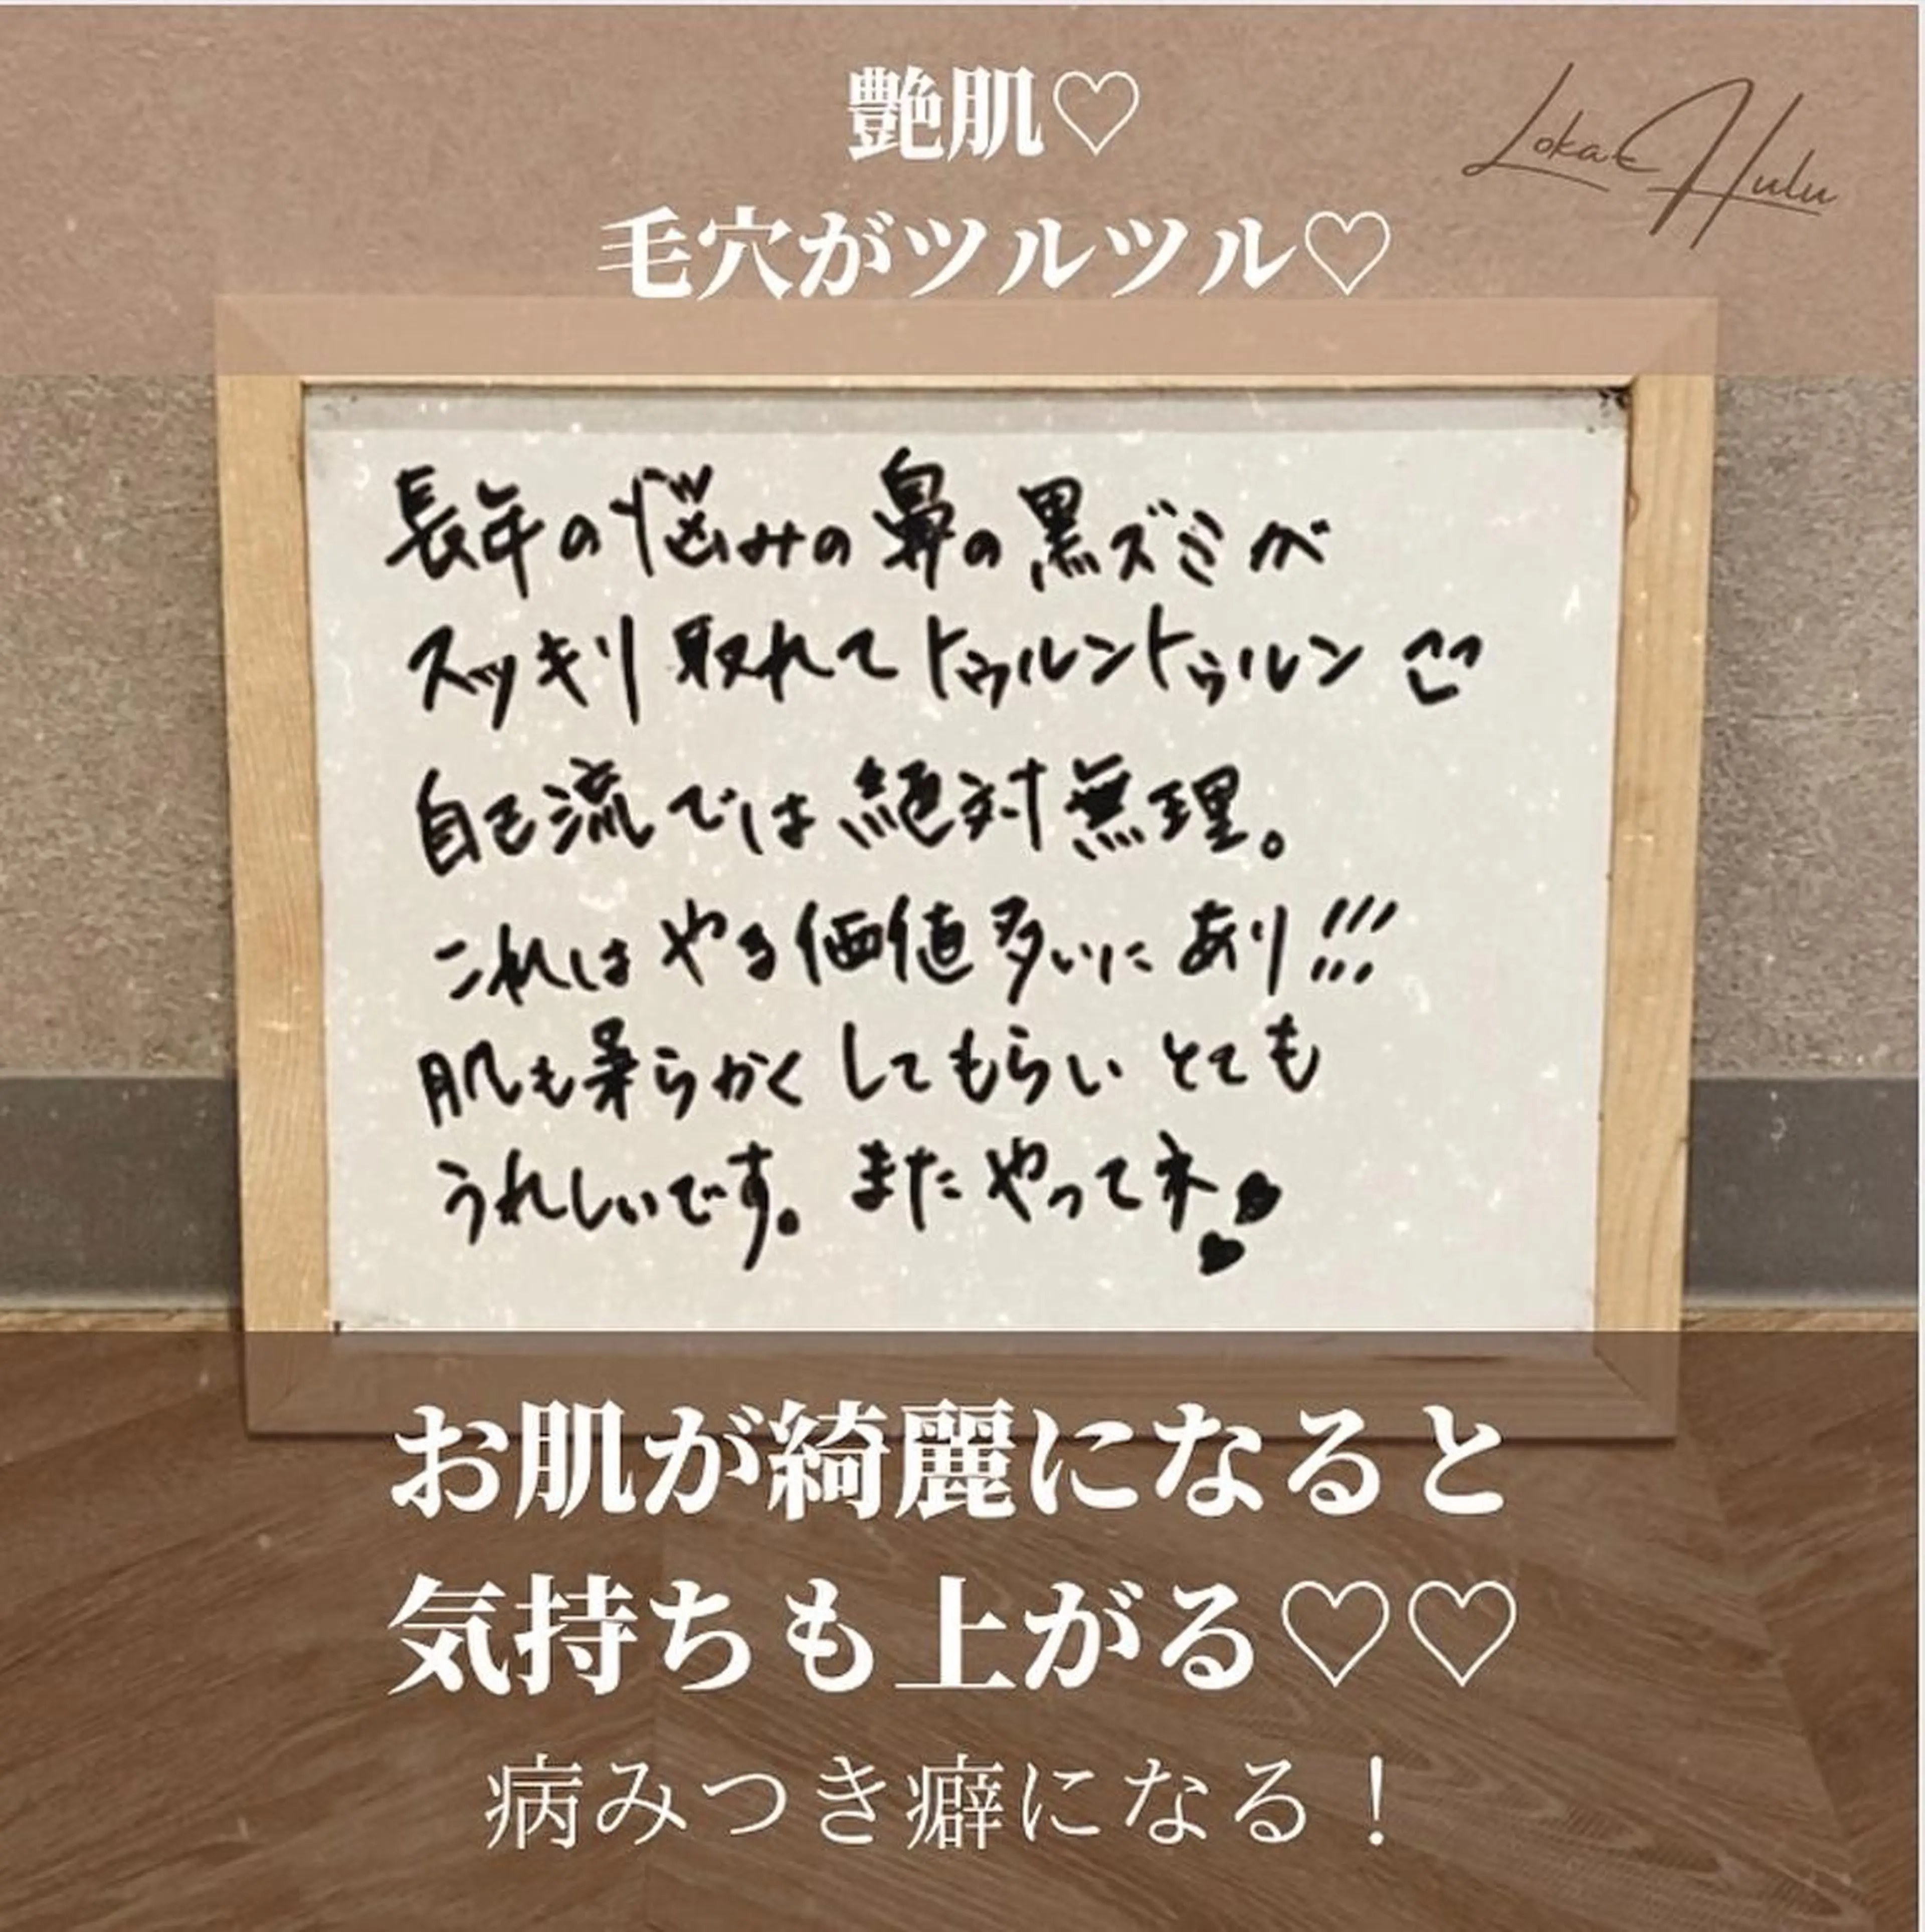 艶肌♡
Loka Hulu
毛穴がツルツル♡
長年の悩みの鼻の黒ズミが
スッキリ取れてトゥルントゥルン
自己流では絶対無理。
これはやる価値多いにあり!!!
肌も柔らかくしてもらいとても
うれしいです。またやってネ♥♥
お肌が綺麗になると
気持ちも上がる♡♡
病みつき癖になる！